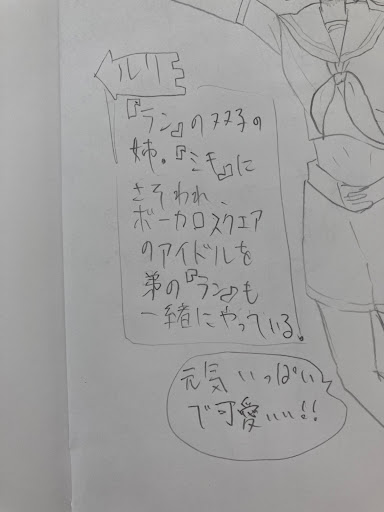 ルリ
『ラン』の双子の
姉。『ミモ』に
さそわれ、
ボーカロスクエア
のアイドルを
弟の『ラン』も
一緒にやっている。
元気いっぱい
で可愛いい!!